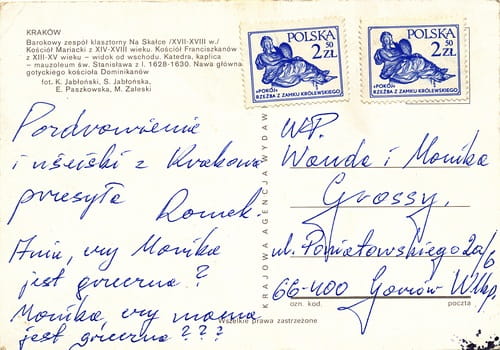 KRAKÓW
Barokowy zespół klasztorny Na Skałce /XVII-XVIII w./
Kościół Mariacki z XIV-XVIII wieku. Kościół Franciszkanów
z XIII-XV wieku – widok od wschodu. Katedra, kaplica
– mauzoleum św. Stanisława z l. 1628-1630. Nawa główna
gotyckiego kościoła Dominikanów
fot. K. Jabłoński, S. Jabłońska,
E. Paszkowska, M. Zaleski
POLSKA
2 50 ZŁ
«POKÓJ»
RZEŹBA Z ZAMKU KRÓLEWSKIEGO
POLSKA
2 50 ZŁ
«POKÓJ»
RZEŹBA Z ZAMKU KRÓLEWSKIEGO
Pozdrowienie
i uściski z Krakowa
przesyła
Romek.
Aniu, czy Monika
jest grzeczna?
Monika czy mama
jest grzeczna???
KRAJOWA AGENCJA WYDAW
W.P.
Wanda i Monika
Grossy.
ul. Poniatowskiego 2a/6
66-400 Gorzów Wlkp.
ozn. kod
poczta
Wszelkie prawa zastrzeżone